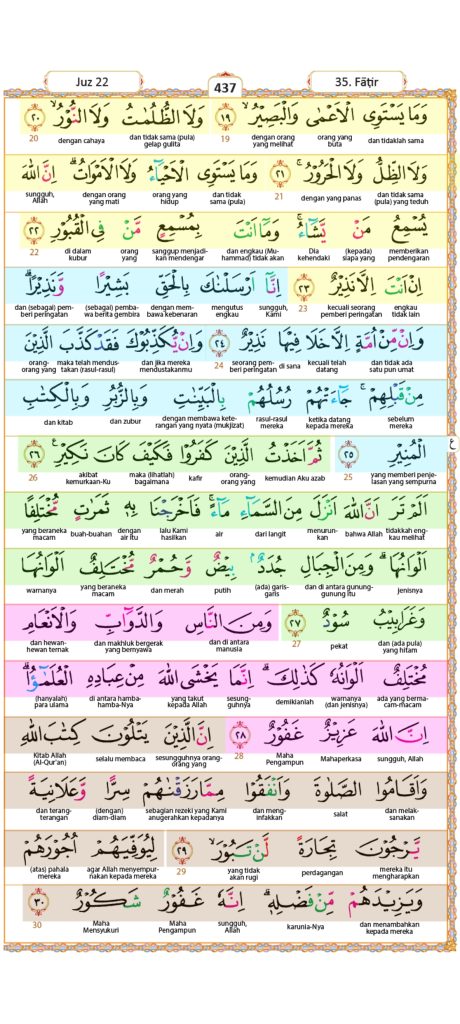 Juz 22
437
35. Fāṭir
وَمَا يَسْتَوِى الْاَعْمٰى وَالْبَصِيْرُۙ ١٩ وَلَا الظُّلُمٰتُ وَلَا النُّوْرُۙ ٢٠
dan tidaklah sama orang yang buta dengan orang yang melihat 19 dan tidak sama (pula) gelap gulita dengan cahaya 20
وَلَا الظِّلُّ وَلَا الْحَرُوْرُۚ ٢١ وَمَا يَسْتَوِى الْاَحْيَاۤءُ وَلَا الْاَمْوَاتُۗ اِنَّ اللّٰهَ
dan tidak sama (pula) yang teduh dengan yang panas 21 dan tidak sama (pula) orang yang hidup dengan orang yang mati sungguh, Allah
يُسْمِعُ مَنْ يَّشَاۤءُۚ وَمَآ اَنْتَ بِمُسْمِعٍ مَّنْ فِى الْقُبُوْرِ ٢٢
memberikan pendengaran (kepada) siapa yang Dia kehendaki dan engkau (Muhammad) tidak akan sanggup menjadikan mendengar orang yang di dalam kubur 22
اِنْ اَنْتَ اِلَّا نَذِيْرٌ ٢٣ اِنَّآ اَرْسَلْنٰكَ بِالْحَقِّ بَشِيْرًا وَّنَذِيْرًاۗ
engkau tidak lain kecuali seorang pemberi peringatan 23 sungguh, Kami mengutus engkau dengan membawa kebenaran (sebagai) pembawa berita gembira dan (sebagai) pemberi peringatan
وَاِنْ مِّنْ اُمَّةٍ اِلَّا خَلَا فِيْهَا نَذِيْرٌ ٢٤ وَاِنْ يُّكَذِّبُوْكَ فَقَدْ كَذَّبَ الَّذِيْنَ
dan tidak ada satu pun umat kecuali telah datang di sana seorang pemberi peringatan 24 dan jika mereka mendustakanmu maka telah mendustakan (rasul-rasul) orang-orang yang
مِنْ قَبْلِهِمْۚ جَاۤءَتْهُمْ رُسُلُهُمْ بِالْبَيِّنٰتِ وَبِالزُّبُرِ وَبِالْكِتٰبِ
sebelum mereka ketika datang kepada mereka rasul-rasul mereka dengan membawa keterangan yang nyata (mukjizat) dan zubur dan kitab
ع
الْمُنِيْرِ ٢٥ ثُمَّ اَخَذْتُ الَّذِيْنَ كَفَرُوْا فَكَيْفَ كَانَ نَكِيْرِ ٢٦
yang memberi penjelasan yang sempurna 25 kemudian Aku azab orang-orang yang kafir maka (lihatlah) bagaimana akibat kemurkaan-Ku 26
اَلَمْ تَرَ اَنَّ اللّٰهَ اَنْزَلَ مِنَ السَّمَاۤءِ مَاۤءًۚ فَاَخْرَجْنَا بِهٖ ثَمَرٰتٍ مُّخْتَلِفًا
tidakkah engkau melihat bahwa Allah menurunkan dari langit air lalu Kami hasilkan dengan air itu buah-buahan yang beraneka macam
اَلْوَانُهَاۗ وَمِنَ الْجِبَالِ جُدَدٌۢ بِيْضٌ وَّحُمْرٌ مُّخْتَلِفٌ اَلْوَانُهَا
jenisnya dan di antara gunung-gunung itu (ada) garis-garis putih dan merah yang beraneka macam warnanya
وَغَرَابِيْبُ سُوْدٌ ٢٧ وَمِنَ النَّاسِ وَالدَّوَاۤبِّ وَالْاَنْعَامِ
dan (ada pula) yang hitam pekat 27 dan di antara manusia dan makhluk bergerak yang bernyawa dan hewan-hewan ternak
مُخْتَلِفٌ اَلْوَانُهٗ كَذٰلِكَۗ اِنَّمَا يَخْشَى اللّٰهَ مِنْ عِبَادِهِ الْعُلَمٰۤؤُاۗ
ada yang bermacam-macam warnanya (dan jenisnya) demikianlah sesungguhnya yang takut kepada Allah di antara hamba-hamba-Nya (hanyalah) para ulama
اِنَّ اللّٰهَ عَزِيْزٌ غَفُوْرٌ ٢٨ اِنَّ الَّذِيْنَ يَتْلُوْنَ كِتٰبَ اللّٰهِ
sungguh, Allah Mahaperkasa Maha Pengampun 28 sesungguhnya orang-orang yang selalu membaca Kitab Allah (Al-Qur'an)
وَاَقَامُوا الصَّلٰوةَ وَاَنْفَقُوْا مِمَّا رَزَقْنٰهُمْ سِرًّا وَّعَلَانِيَةً
dan melaksanakan salat dan menginfakkan sebagian rezeki yang Kami anugerahkan kepadanya (dengan) diam-diam dan terang-terangan
يَّرْجُوْنَ تِجَارَةً لَّنْ تَبُوْرَۙ ٢٩ لِيُوَفِّيَهُمْ اُجُوْرَهُمْ
mereka itu mengharapkan perdagangan yang tidak akan rugi 29 agar Allah menyempurnakan kepada mereka (atas) pahala mereka
وَيَزِيْدَهُمْ مِّنْ فَضْلِهٖۗ اِنَّهٗ غَفُوْرٌ شَكُوْرٌ ٣٠
dan menambahkan kepada mereka karunia-Nya sungguh, Allah Maha Pengampun Maha Mensyukuri 30